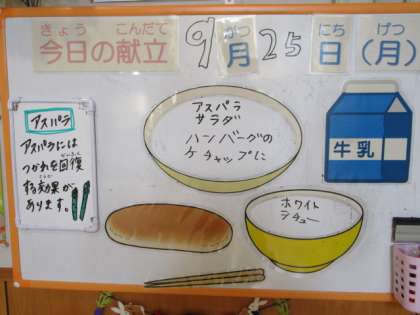 きょう こんだて
今日の献立 9月25日(月)
がつ にち げつ
アスパラ
サラダ
ハンバーグの
ケチャップに
牛乳
アスパラ
アスパラには
つかれを回復
する効果が
あります。
ホワイト
シチュー